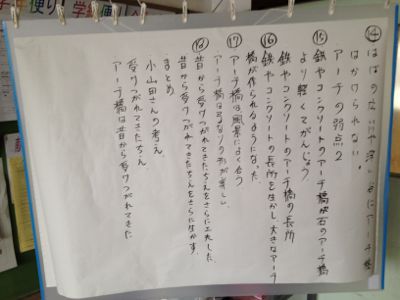 学年便り
学
⑭
はばの広い川や深い谷にアーチ橋
はかけられない。
アーチの弱点2
⑮
鉄やコンクリートのアーチ橋は石のアーチ橋
より軽くてがんじょう
鉄やコンクリートのアーチ橋の長所
⑯
鉄やコンクリートの長所を生かし大きなアーチ
橋が作られるようになった
⑰
アーチ橋は風景によく合う
アーチ橋はまるなりの形が美しい
⑱
昔から受けつがれてきたちえをさらに工夫した
昔から受けつがれてきたちえをさらに生かす
まとめ
小山田さんの考え
受けつがれてきたちえ
アーチ橋は昔から受けつがれてきた